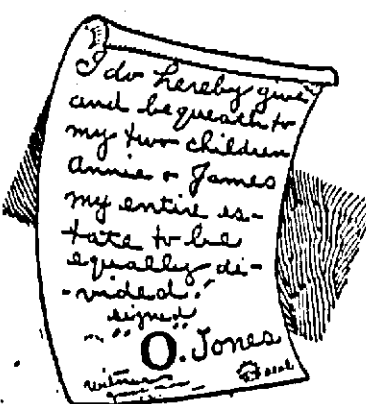 I do hereby give
and bequeath to
my two children
Annie & James
my entire es-
tate to be
equally di-
-vided."
signed
O. Jones
witness
seal